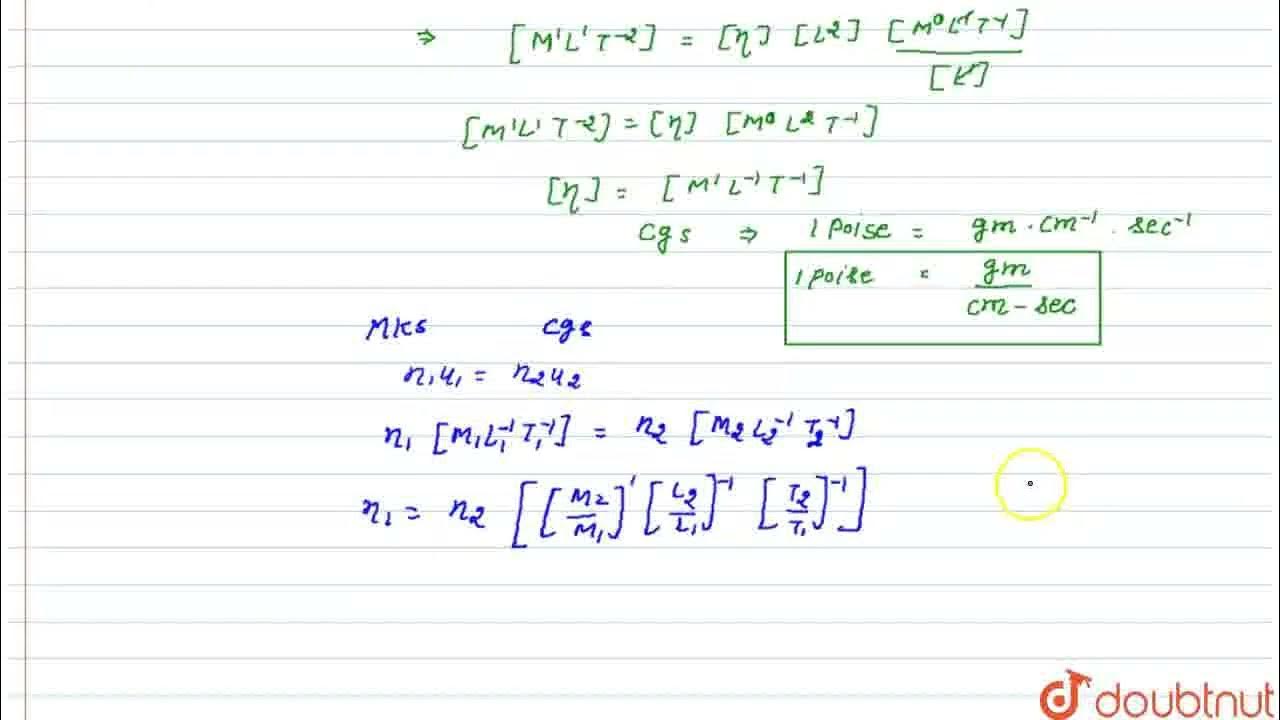 ⇒ [M¹L¹T⁻²] = [η] [L²] [M⁰L¹T⁻¹] / [L]
[M¹L¹T⁻²] = [η] [M⁰L²T⁻¹]
[η] = [M¹L⁻¹T⁻¹]
cgs ⇒ 1 poise = gm · cm⁻¹ · sec⁻¹
1 poise = gm / cm-sec
MKS cgs
n₁u₁ = n₂u₂
n₁ [M₁L₁⁻¹T₁⁻¹] = n₂ [M₂L₂⁻¹T₂⁻¹]
n₁ = n₂ [[M₂/M₁]¹ [L₂/L₁]⁻¹ [T₂/T₁]⁻¹]
doubtnut